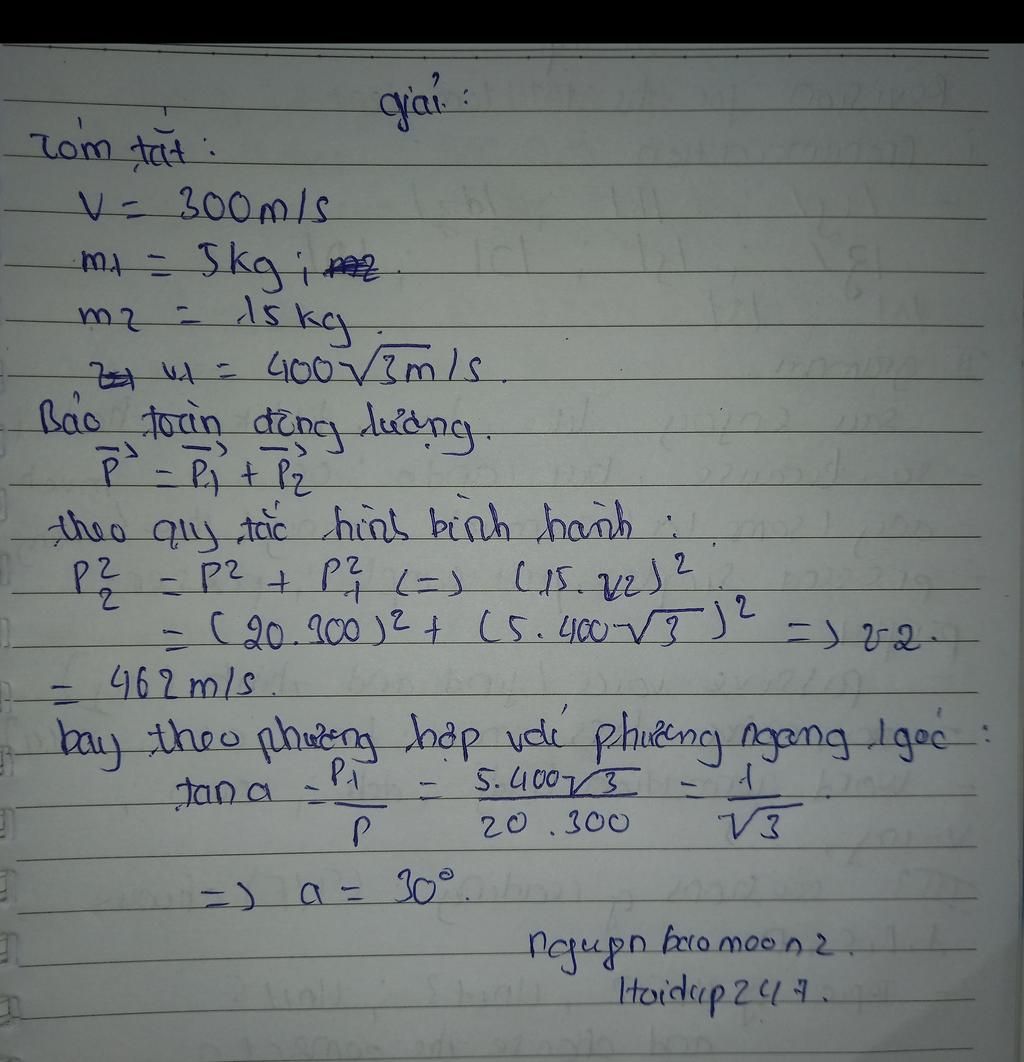 giải:
Tóm tắt:
V = 300m/s
m1 = 5kg;
m2 = 15kg.
v1 = 400√3m/s.
Bảo toàn động lượng.
P⃗ = P⃗1 + P⃗2
theo quy tắc hình bình hành:
P2² = P² + P1² (=) (15.v2)²
= (20.300)² + (5.400√3)² =) v2.
= 462m/s.
bay theo phương hợp với phương ngang 1 góc:
tan a = P1/P = 5.400√3/20.300 = 1/√3
=) a = 30°.
nguyn baomoon2.
Hoidap247.